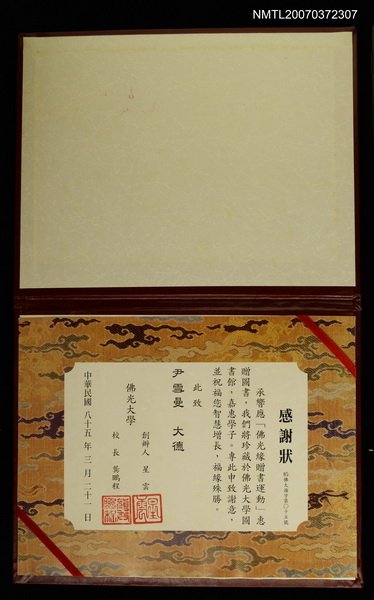 NMTL20070372307
感謝狀
佛大圖字第〇十五號
承響應「佛光緣贈書運動」惠
贈圖書，我們將珍藏於佛光大學圖
書館，嘉惠學子。專此申致謝意，
並祝福您智慧增長，福緣殊勝。
此致
尹雪曼 大德
佛光大學
創辦人 星雲
校長 龔鵬程
中華民國 八十五年 三月 二十一日